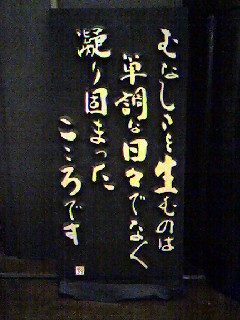 むなしさを生むのは
単調な日々でなく
凝り固まった
こころです